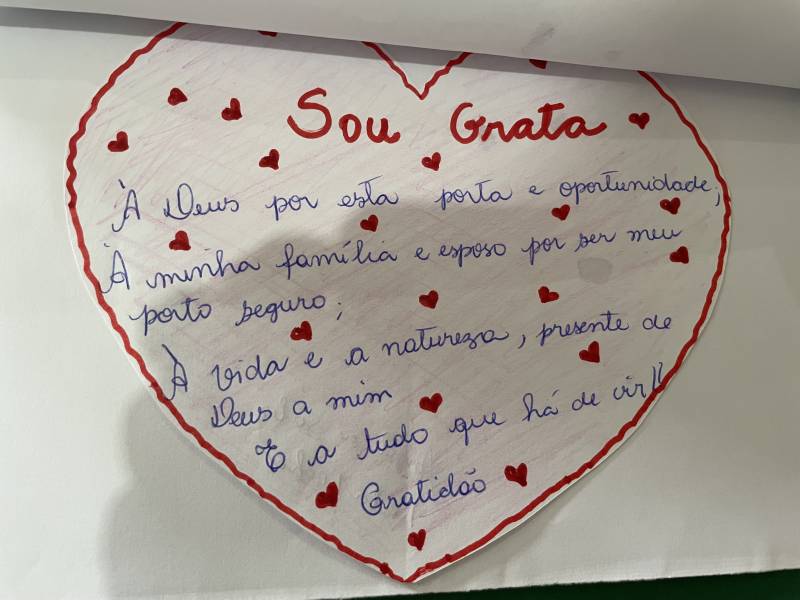 Sou Grata
À Deus por esta porta e oportunidade;
À minha família e esposo por ser meu
porto seguro;
À vida e a natureza, presente de
Deus a mim
E a tudo que há de vir!!
Gratidão